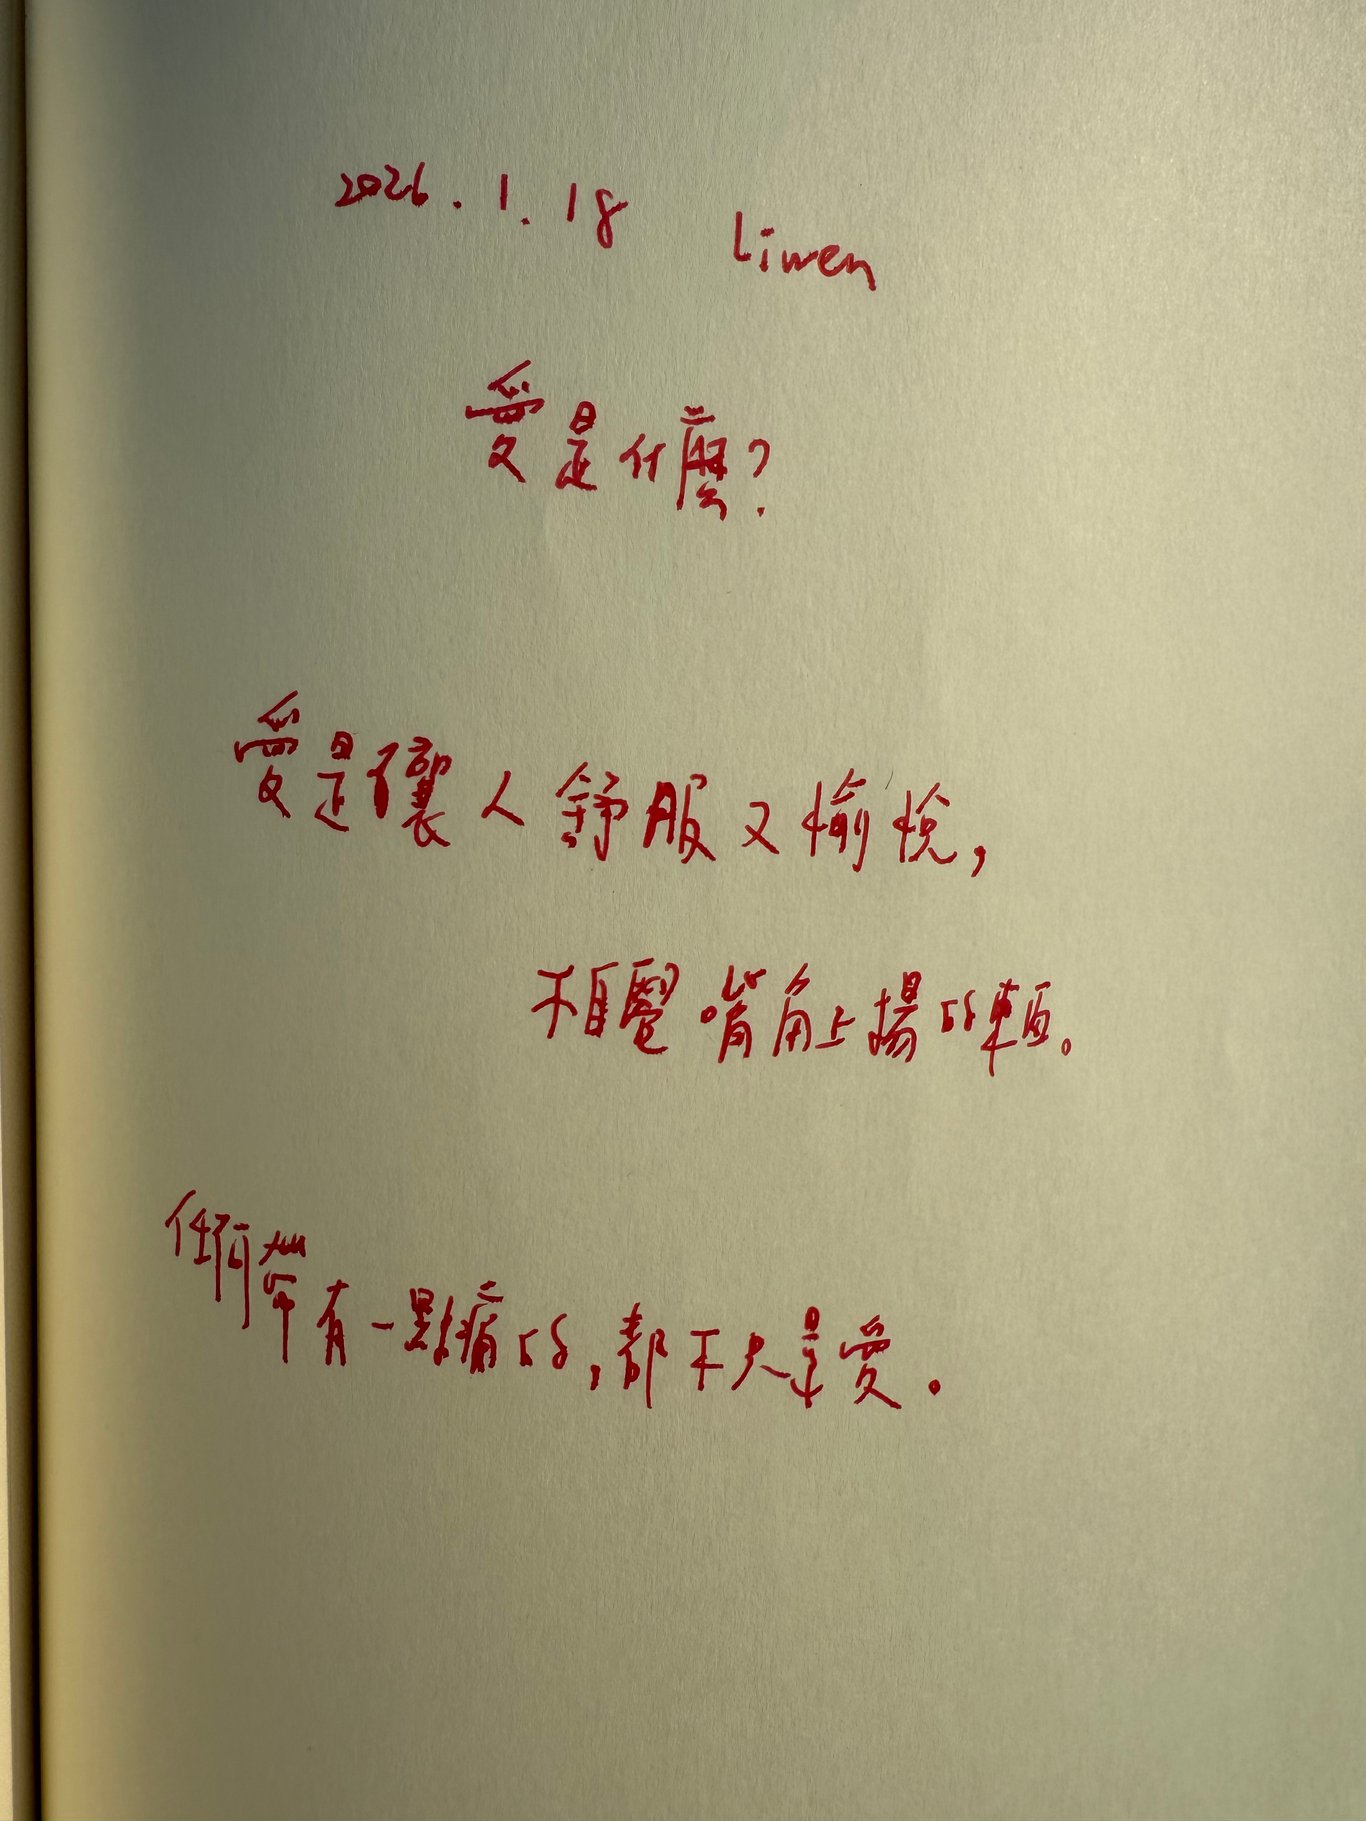 2026.1.18 Liwen
愛是什麼?
愛是讓人舒服又愉悅,
不自覺嘴角上揚的東西。
任何帶有一點痛的,都不大是愛。